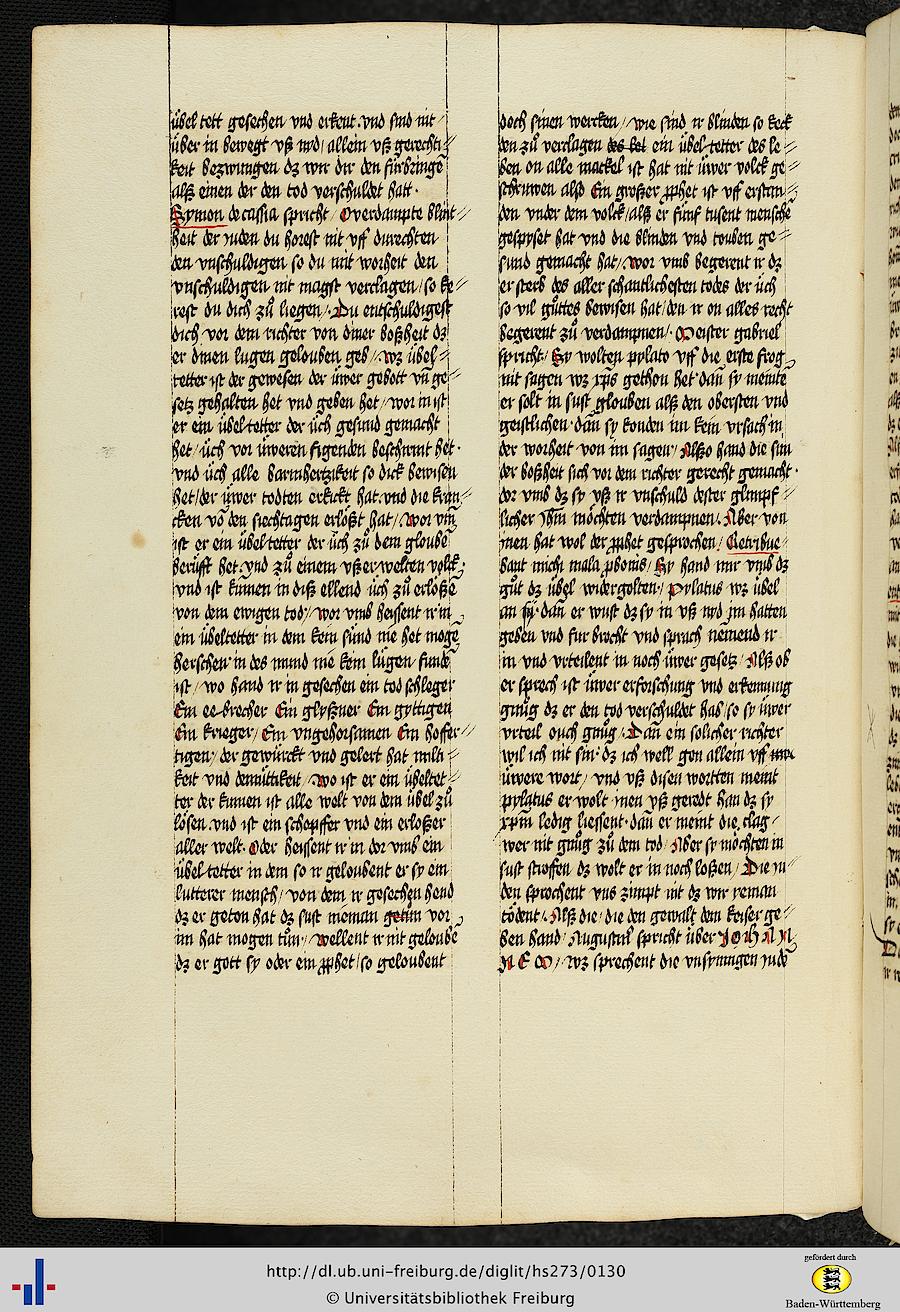 übel tett gesechen vnd erkent vnd sind nit
über in bewegt vß nyd / allein vß gerechti=
keit bezwungen dz wir dir den fürbringē
alß einen der den tod verschuldet hatt ·
Symon de cassia spricht / O verdampte blint=
heit der juden du horest nit vff durechten
den vnschuldigen so du mit worheit den
vnschuldigen nit magst verclagen / so ke
rest du dich zů liegen / Du entschuldigest
dich vor dem richter von diner boßheit dz
er dinen lugen gelouben geb / wz übel=
tetter ist der gewesen der üwer gebott vn̄ ge=
setz gehalten het vnd geben het / wor in ist
er ein übeltetter der üch gesund gemacht
het / üch vor üweren figenden beschirmt het ·
vnd üch alle barmhertzikeit so dick bewisen
het / der üwer todten erkickt hat vnd die kran=
cken vō den siechtagen erlößt hat / wor vm̄
ist er ein übeltetter der üch zů dem gloubē
berüfft het vnd zů einem vßerwelten volk
vnd ist kumen in diß ellend üch zů erloßē
von dem ewigen tod / wor vmb heissent ir in
ein übeltetter in dem kein sünd nie het mogē
herschen in des mund nie kein lügen fundē
ist / wo hand ir in gesechen ein tod schleger
Ein ee brecher Ein glyßner Ein gyttigen
Ein krieger / Ein vngehorsamen Ein hoffer=
tigen / der gewürckt vnd gelert hat milti=
keit vnd demüttikeit / wo ist er ein übeltet=
ter der kumen ist alle welt von dem übel zů
lösen vnd ist ein schepffer vnd ein erloßer
aller welt · Oder heissent ir in dor vmb ein
übel tetter in dem so ir geloubent er sy ein
lutterer mensch / von dem ir gesechen hend
dz er geton hat dz sust nieman vor
im hat mogen tůn / wellent ir nit geloubē
dz er gott sy oder ein ꝓphet / so geloubent
doch sinen wercken / wie sind ir blinden so keck
den zů verclagen des kei ein übel tetter des le=
ben on alle mackel ist hat nit üwer volck ge=
schruwen alsd Ein großer ꝓphet ist vff erstan=
den vnder dem volck / alß er fünf tusent mensche
gespyset hat vnd die blinden vnd touben ge=
sund gemacht hat / wor vmb begerent ir dz
er sterb des aller schantlichesten todes der üch
so vil gůttes bewisen hat / den ir on alles recht
begerent zů verdampnen / Meister gabriel
spricht / Sy wolten pylato vff die erste frog
nit sagen wz xp̄s gethon het dan̄ sy meintē
er solt in sust glouben alß den obersten vnd
geistlichen · dan̄ sy konden im kein vrsach in
der worheit von im sagen / Alßo hand die sün
der boßheit sich vor dem richter gerecht gemacht ·
dor vmb dz sy vß ir vnschuld dester glimpf=
licher jhm̄ möchten verdampnen / Aber von
jnen hat wol der ꝓphet gesprochen / Retribue=
bant mich mala ꝓ bonis / Sy hand mir vmb dz
gůt dz übel widergolten / Pylatus wz übel
an sy / dan̄ er wust dz sy in vß nyd jm hatten
geben vnd fur brocht vnd sprach nemend ir
in vnd vrteilent in noch üwer gesetz / Alß ob
er sprech ist üwer erforschung vnd erkennung
gnůg dz er den tod verschuldet hab / so sy üwer
vrteil ouch gnůg / Dan ein solicher richter
wil ich nit sin · dz ich well gon allein vff
üwere wort / vnd vß disen wortten meint
pylatus er wolt jnen vß geredt han dz sy
xp̄m ledig liessent · dan̄ er meint die clag
wer nit gnůg zů dem tod / Aber sy möchten in
sust stroffen dz wolt er in noch loßen / Die ju=
den sprochent vns zimpt nit dz wir yeman
tödent / Alß die / die den gewalt dem keiser ge=
ben hand / Augustus spricht über JOHAN
NEM / wz sprechent die vnsynnigen judē
http://dl.ub.uni-freiburg.de/diglit/hs273/0130
© Universitätsbibliothek Freiburg
gefördert durch
Baden-Württemberg